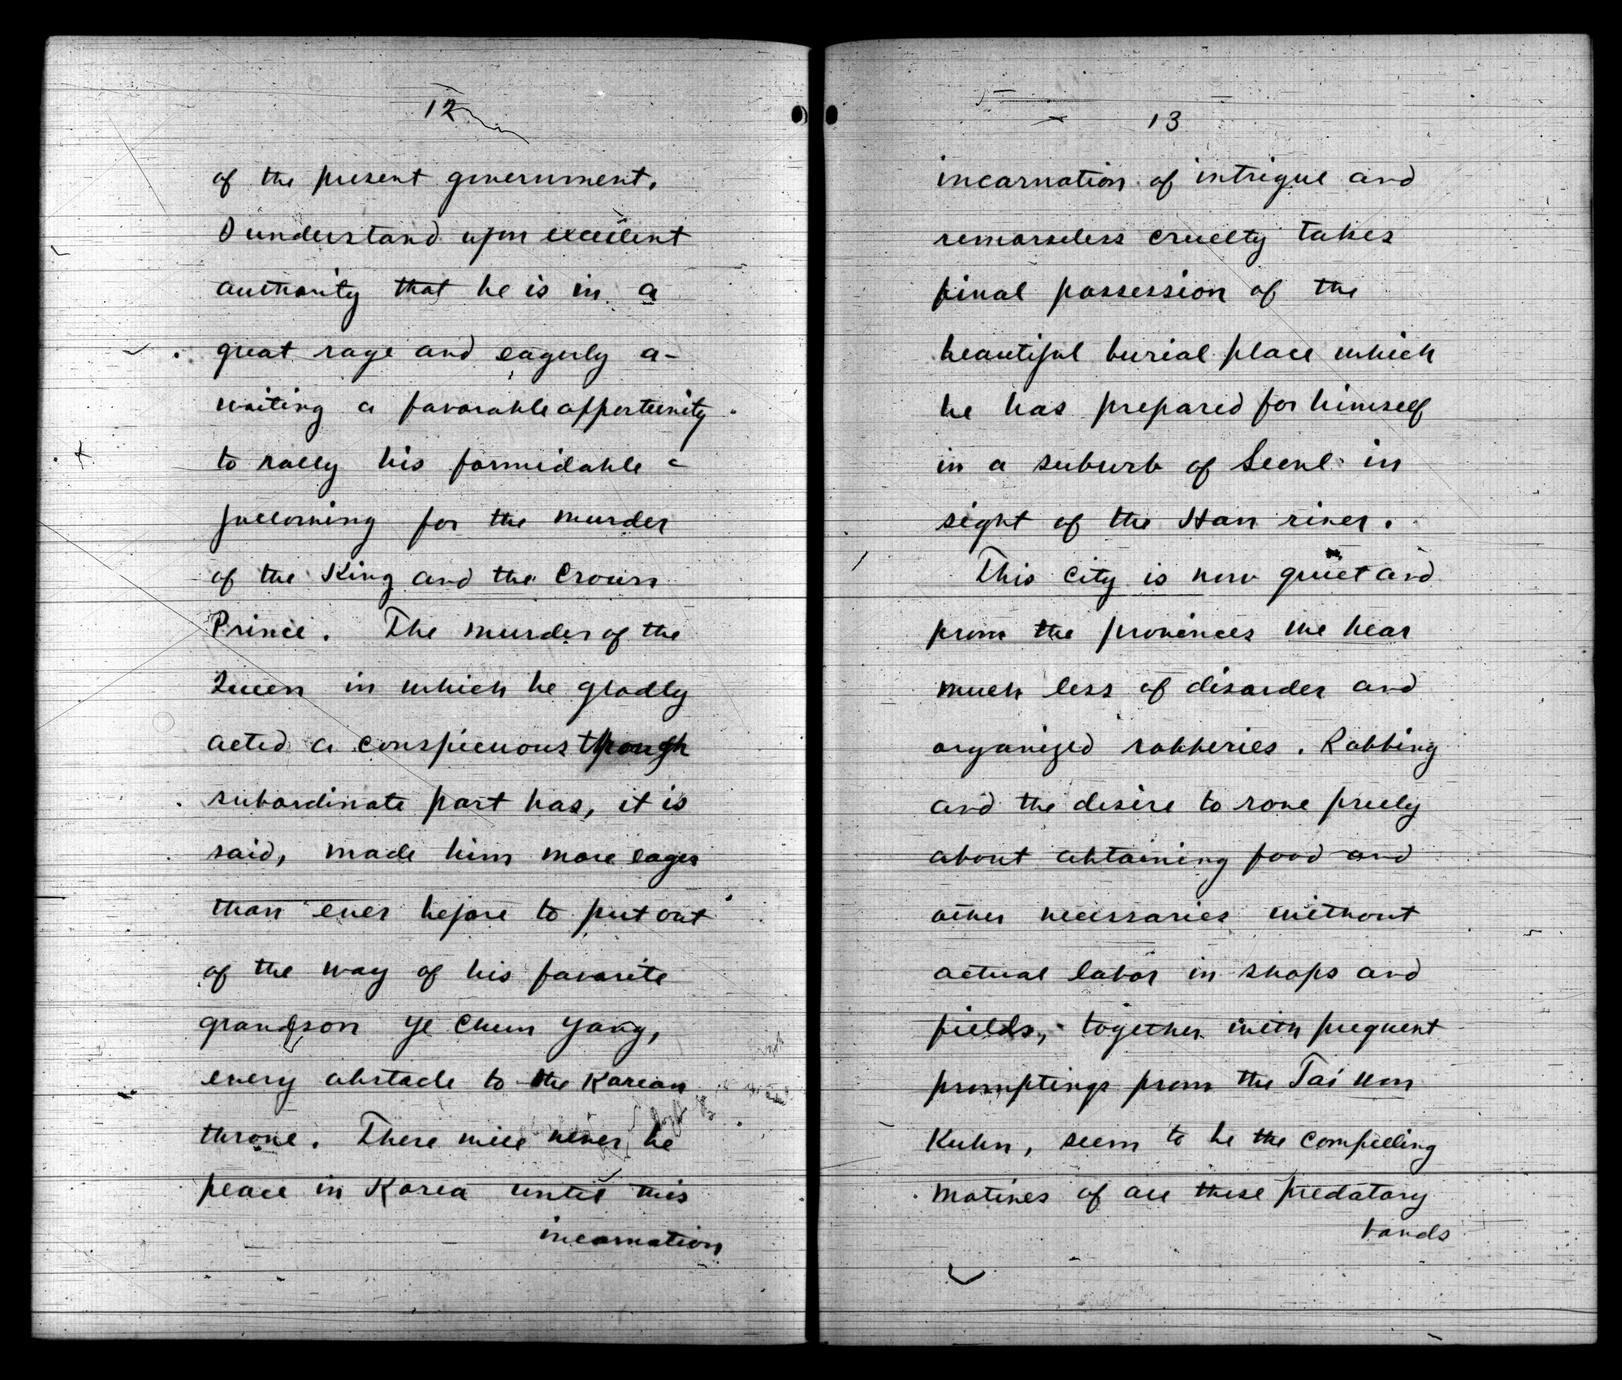 12
of the present government.
I understand upon excellent
authority that he is in a
great rage and eagerly a-
waiting a favorable opportunity
to rally his formidable
following for the murder
of the King and the Crown
Prince. The murder of the
Queen in which he gladly
acted a conspicuous though
subordinate part has, it is
said, made him more eager
than ever before to put out
of the way of his favorite
grandson Ye Chun Yang,
every obstacle to the Korean
throne. There will never be
peace in Korea until this
incarnation
13
incarnation of intrigue and
remorseless cruelty takes
final possession of the
beautiful burial place which
he has prepared for himself
in a suburb of Seoul in
sight of the Han river.
This city is now quiet and
from the provinces we hear
much less of disorder and
organized robberies. Robbing
and the desire to rove freely
about obtaining food and
other necessaries without
actual labor in shops and
fields, together with frequent
promptings from the Tai Won
Kuhn, seem to be the compelling
motives of all these predatory
bands